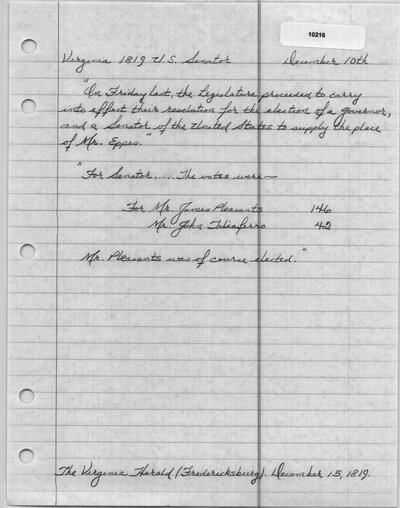 10216
Virginia 1819 U.S. Senator December 10th
"On Friday last, the Legislature proceeded to carry
into effect their resolution for the election of a governor,
and a Senator of the United States to supply the place
of Mr. Eppes.
"For Senator.....The votes were—
For Mr. James Pleasants 146
Mr. John Taliaferro 42
Mr. Pleasants was of course elected."
The Virginia Herald (Fredericksburg). December 15, 1819.